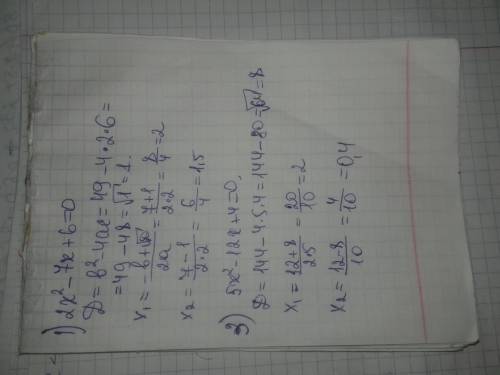 1) 2x²-7x+6=0
D=b²-4ac=49-4•2•6=
=49-48=√1=1.
x₁=-b+√D/2a=7+1/2·2=8/4=2
x₂=7-1/2·2=6/4=1,5
3) 5x²-12x+4=0,
D=144-4·5·4=144-80=√64=8
x₁=12+8/2·5=20/10=2
x₂=12-8/10=4/10=0,4